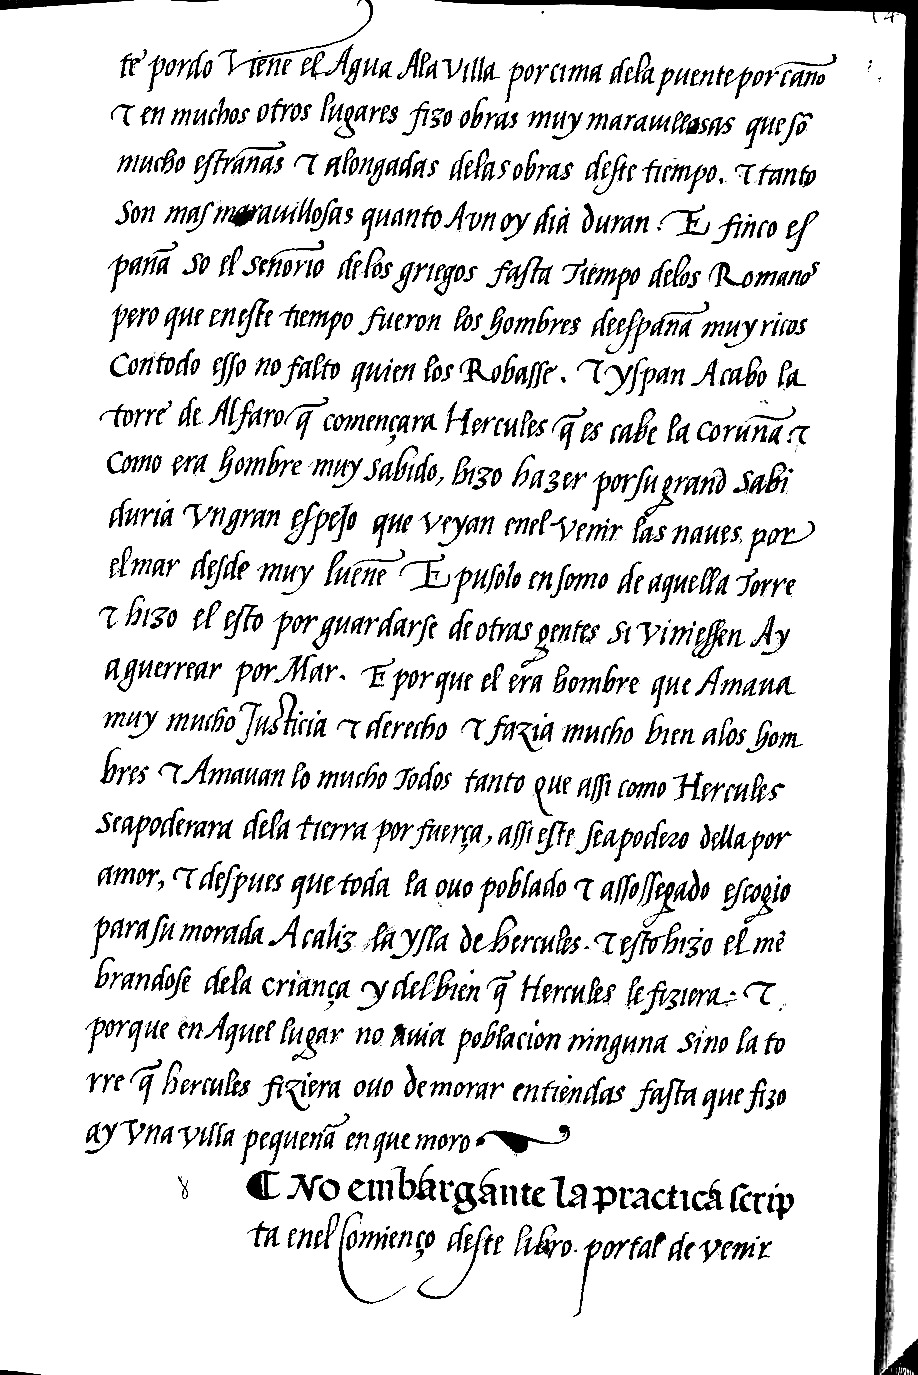 te pordo viene el Agua Ala villa por cima dela puente por caño
τ en muchos otros lugares fizo obras muy marauillosas que sõ
mucho estrañas τ alongadas delas obras deste tiempo. τ tanto
Son mas marauillosas quanto Avn oy dia duran. E finco es
paña so el señorio delos griegos fasta tiempo delos Romanos
pero que en este tiempo fueron los hombres de españa muy ricos
Con todo esso no falto quien los Robasse. τ yspan Acabo la
torre de Alfaro q̃ començara Hercules q̃ es cabe la coruña τ
Como era hombre muy sabido, hizo hazer por su grand Sabi
duria vn gran espejo que veyan enel venir las naues por
el mar desde muy lueñe E pusolo en somo de aquella Torre
τ hizo el esto por guardarse de otras gentes si viniessen Ay
a guerrear por Mar. E porque el era hombre que Amaua
muy mucho Justicia τ derecho τ fazia mucho bien alos hom
bres τ Amauan lo mucho Todos tanto que assi como Hercules
se apoderara dela tierra por fuerça, assi este se apodero della por
amor, τ despues que toda la ouo poblado τ assossegado escogio
para su morada A caliz la ysla de hercules. τ esto hizo el mẽ
brandose dela criança y del bien q̃ Hercules le fiziera. τ
porque en Aquel lugar no auia poblacion ninguna sino la to
rre q̃ hercules fiziera ouo de morar en tiendas fasta que fizo
ay vna villa pequeña en que moro.
¶ No embargante la practica scrip
ta enel comienço deste libro. por tal de venir